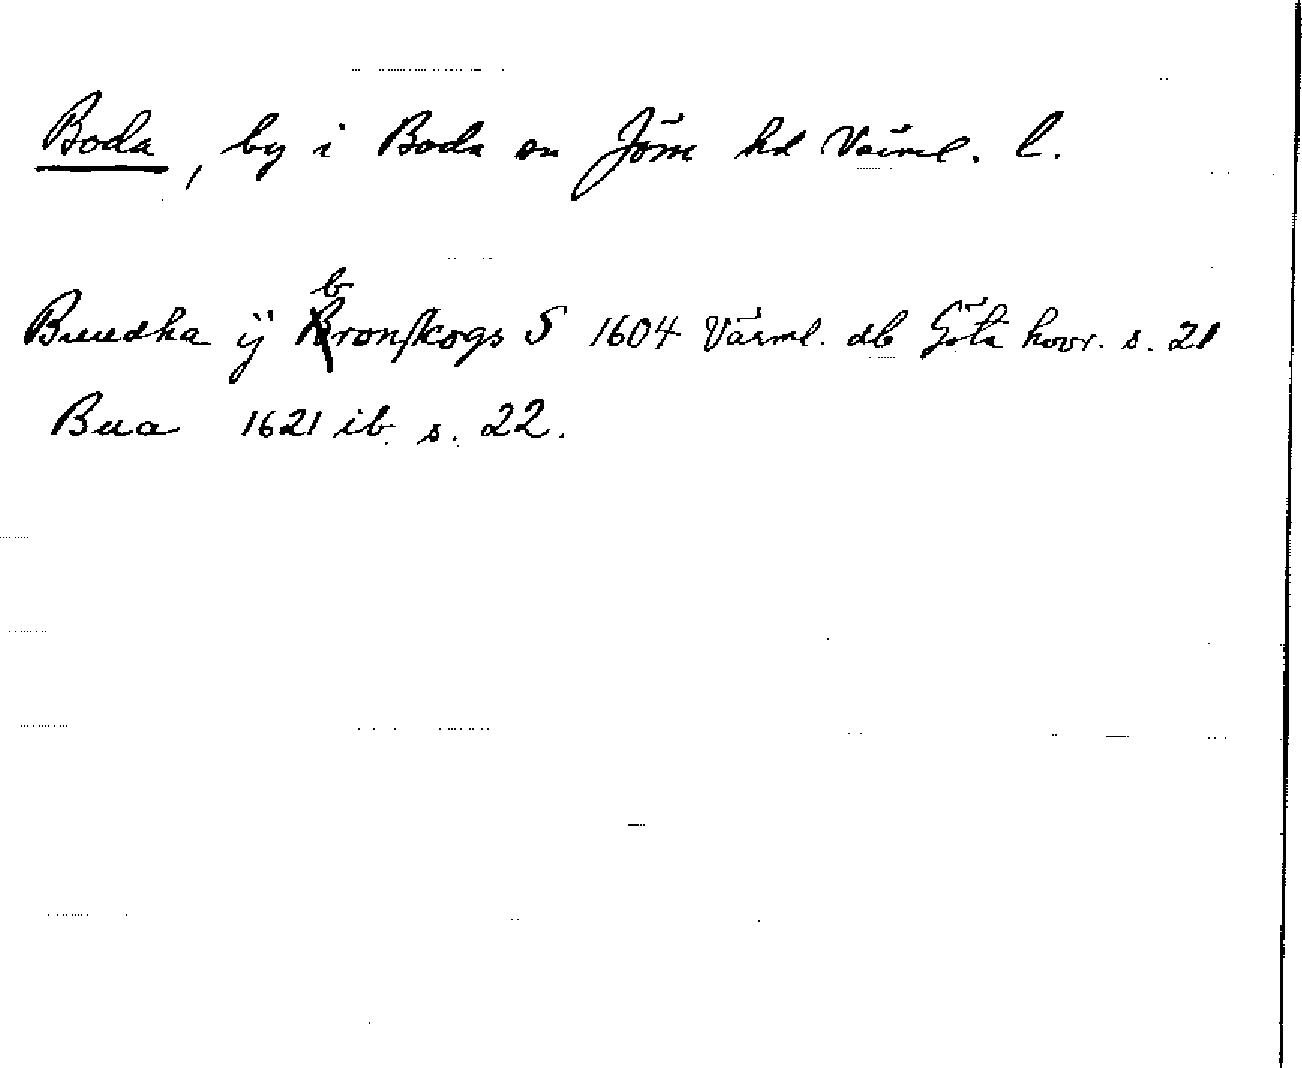 Boda, by i Boda sn Jöss hd Värml. l.
Buudha ÿ bronskogs S 1604 Värml. db Göta hovr. s. 21
Bua 1621 ib. s. 22.